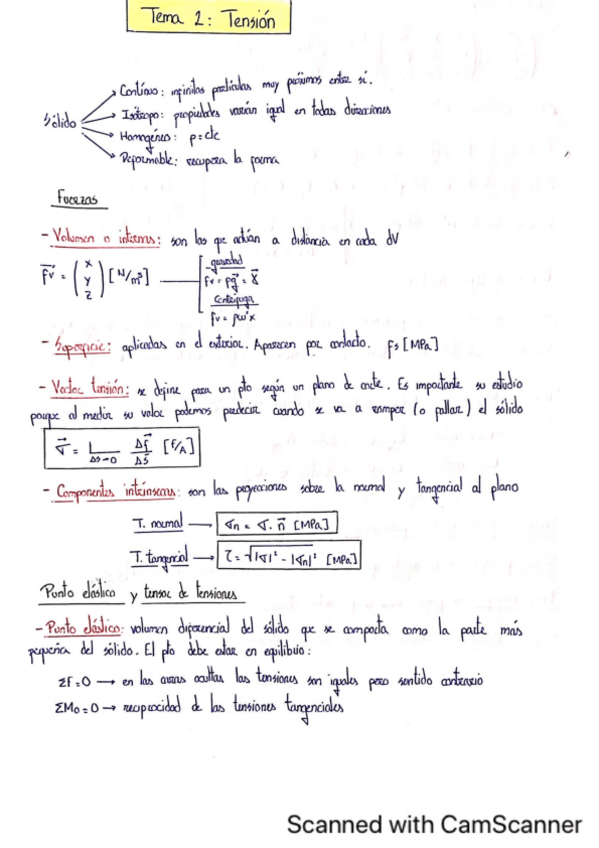 Tema 2: Tensión
Sólido
Contínuo: infinitas partículas muy próximos entre sí.
Isótropo: propiedades varían igual en todas direcciones
Homogéneo: ρ=cte
Deformable: recupera la forma
Fuerzas
- Volumen o internas: son las que actúan a distancia en cada dV
fv = (x y z) [N/m³]
gravedad
fv = ρg = γ
Centrífuga
fv = ρω²x
- Superficie: aplicadas en el exterior. Aparecen por contacto. fs [MPa]
- Vector tensión: se define para un pto según un plano de corte. Es importante su estudio
porque al medir su valor podemos predecir cuando se va a romper (o fallar) el sólido
σ = L Δs→0 Δf/Δs [F/A]
- Componentes intrínsecas: son las proyecciones sobre la normal y tangencial al plano
T. normal → σn = σ · n [MPa]
T. tangencial → τ = √|σ|² - |σn|² [MPa]
Punto elástico y tensor de tensiones
- Punto elástico: volumen diferencial del sólido que se comporta como la parte más
pequeña del sólido. El pto debe estar en equilibrio:
ΣF=0 → en las caras ocultas las tensiones son iguales pero sentido contrario
ΣMo=0 → reciprocidad de las tensiones tangenciales
Scanned with CamScanner